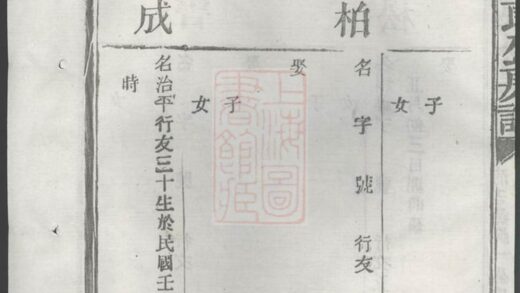 族譜
子
女
柏
名 字 號 行友
娶
子
女
成
名治平行友三十生於民國壬
時
上海圖書館藏